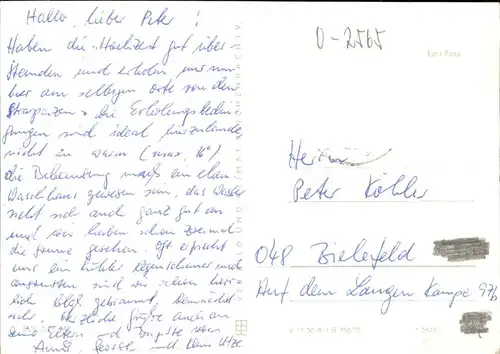 Hallo, lieber Peter!
Haben die "Hochzeit gut über-
standen und erholen uns nun
hier am selbigen Orte von den
Strapazen. Die Erholungsbedin-
gungen sind ideal hierzulande,
nicht zu warm (max. 16°)
die Behausung muß ein ehem.
Waschhaus gewesen sein, das Wasser
sieht sich auch ganz gut an
und wir haben schon zweimal
die Sonne gesehen. Oft erfrischt
uns ein kühler Regenschauer und
ansonsten sind wir schon herr-
lich gebräunt,
Herzliche Grüße auch an
Deine Eltern und Brigitte von
George und Hans
0-2565
Herrn
Peter Köhler
048 Bielefeld
Auf dem Langen Kampe 97